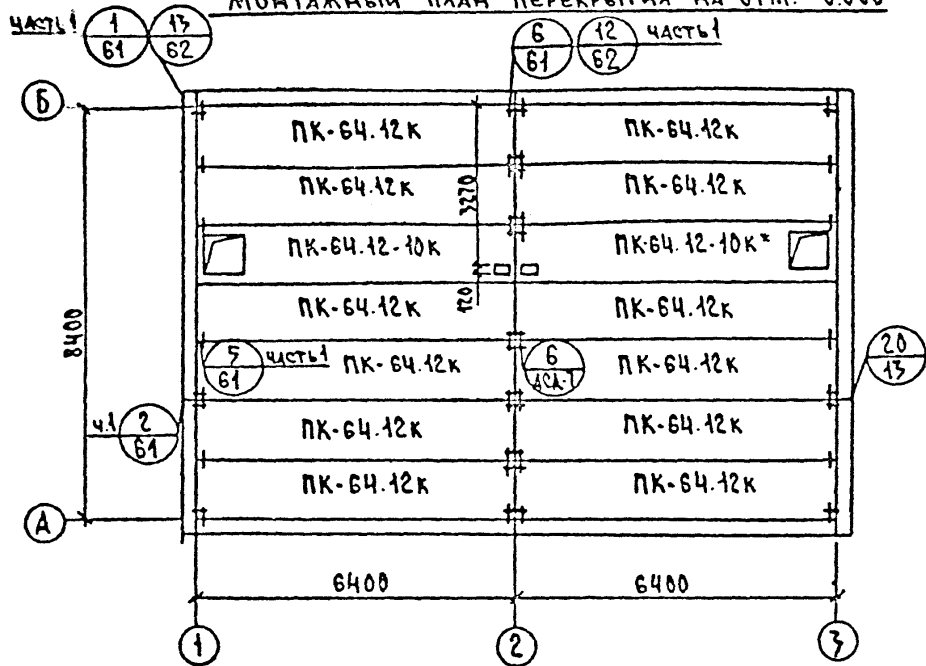 МОНТАЖНЫЙ ПЛАН ПЕРЕКРЫТИЯ НА ОТМ. 0.000
ЧАСТЬ 1 1/61 13/62
6/61 12/62 ЧАСТЬ 1
Б
ПК-64.12к ПК-64.12к
ПК-64.12к 3270 ПК-64.12к
ПК-64.12-10к ПК-64.12-10к*
120
ПК-64.12к ПК-64.12к
8400
5/61 ЧАСТЬ 1 ПК-64.12к 6/АСД-1 ПК-64.12к 20/13
ч.1 2/61 ПК-64.12к ПК-64.12к
ПК-64.12к ПК-64.12к
А
6400 6400
1 2 3